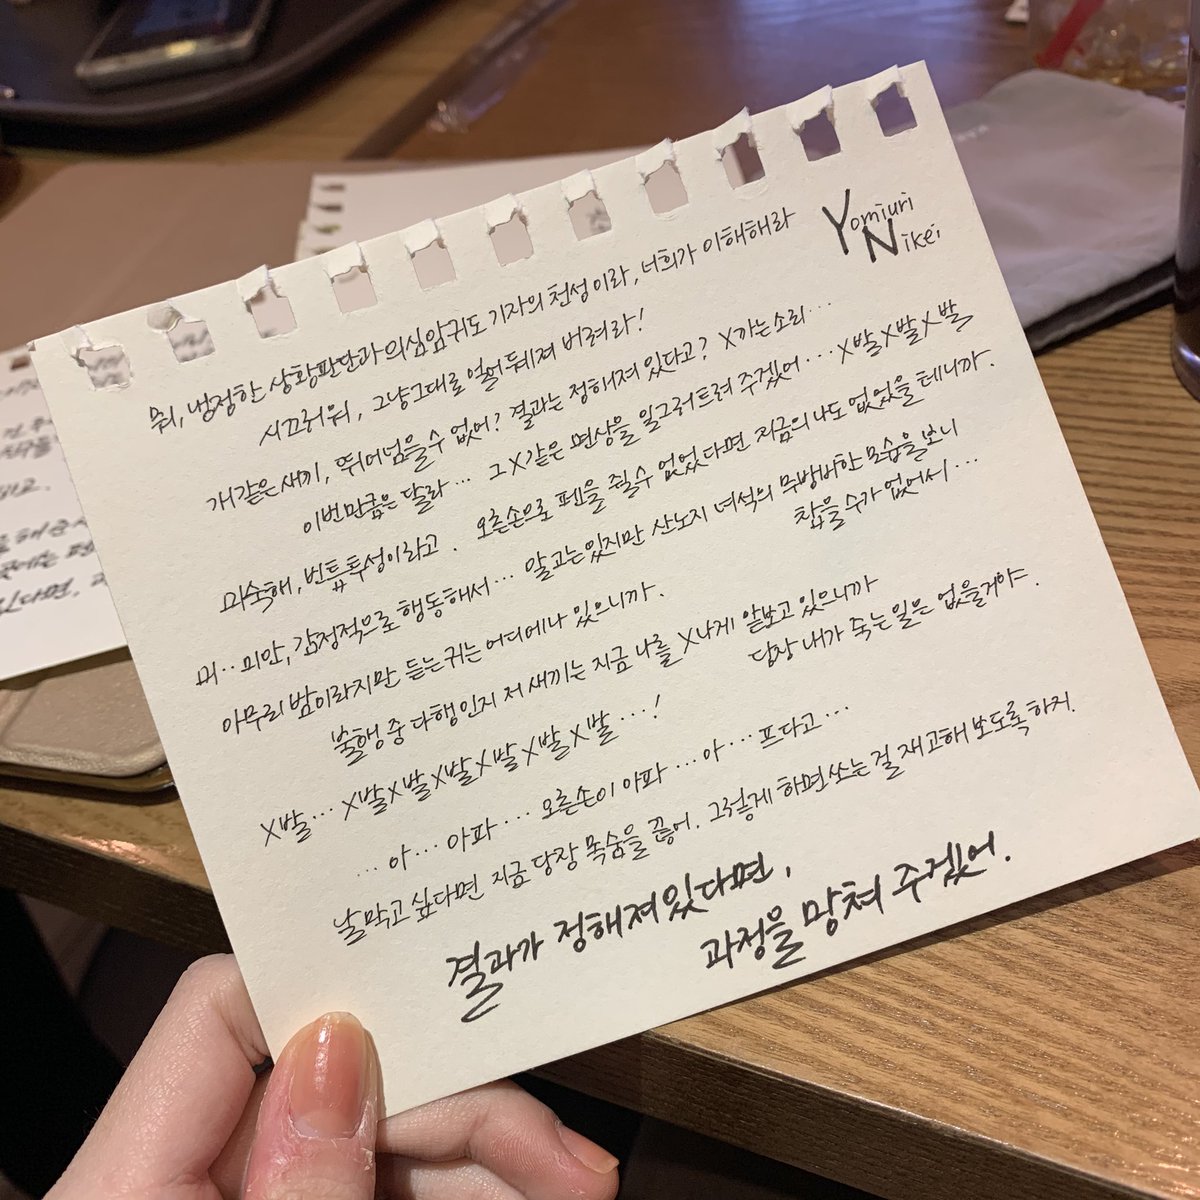 Yomiuri
Nikei
뭐, 냉정한 상황판단과 의심암귀도 기자의 천성이라, 너희가 이해해라
시끄러워, 그냥그대로 얻어 뒈져 버려라!
개같은 새끼, 뛰어넘을 수 없어? 결과는 정해져 있다고? X까는소리…
이번만큼은 달라… 그 X같은 면상을 일그러트려 주겠어… X발X발X발
미숙해, 빈틈투성이라고. 오른손으로 펜을 쥘수 없었다면 지금의 나도 없었을 테니까.
미‥미안, 감정적으로 행동해서… 알고는있지만 산노지 녀석의 무방비한 모습을 보니
참을 수가 없어서…
아무리 밤이라지만 듣는 귀는 어디에나 있으니까.
불행 중 다행인지 저 새끼는 지금 나를 X나게 얕보고 있으니까
당장 내가 죽는일은 없을거야.
X발… X발X발X발X발X발X발…!
…아… 아파… 오른손이 아파…아…프다고…
날 막고 싶다면 지금 당장 목숨을 끊어. 그렇게 하면 쏘는 걸 재고해 보도록 하지.
결과가 정해져있다면,
과정을 망쳐 주겠어.